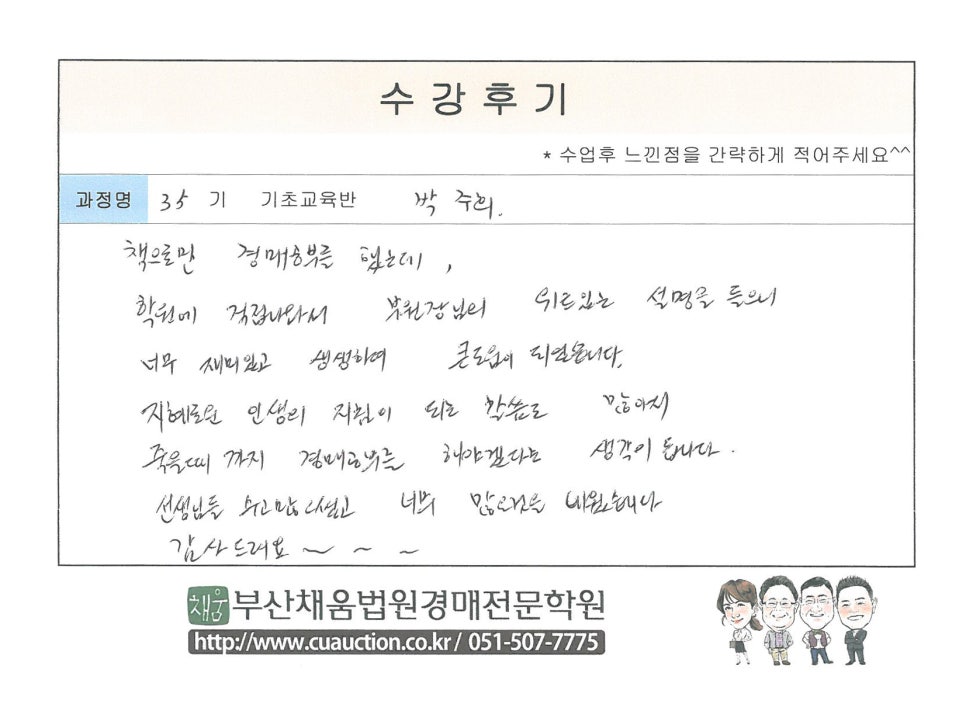 수강후기
* 수업후 느낀점을 간략하게 적어주세요^^
과정명 35 기 기초교육반 박 주희.
책으로만 경매공부를 했는데,
학원에 직접나와서 부원장님의 위트있는 설명을 들으니
너무 재미있고 생생하여 큰도움이 되었습니다.
지혜로운 인생의 지침이 되는 말씀도 많아서
죽을때 까지 경매공부를 해야겠다는 생각이 듭니다.
선생님들 수고많으셨고 너무 많은것을 배웠습니다
감사드려요 ~ ~ ~
채움 부산채움법원경매전문학원
http://www.cuauction.co.kr/ 051-507-7775